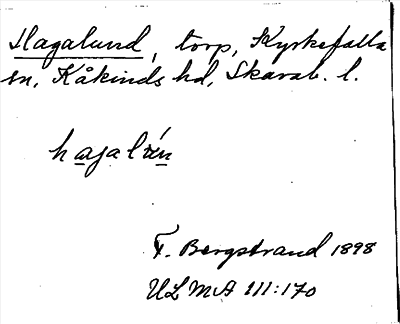 Hagalund, torp, Kyrkefalla
sn, Kåkinds hd, Skarab. l.
F. Bergstrand 1898
ULMA 111:170